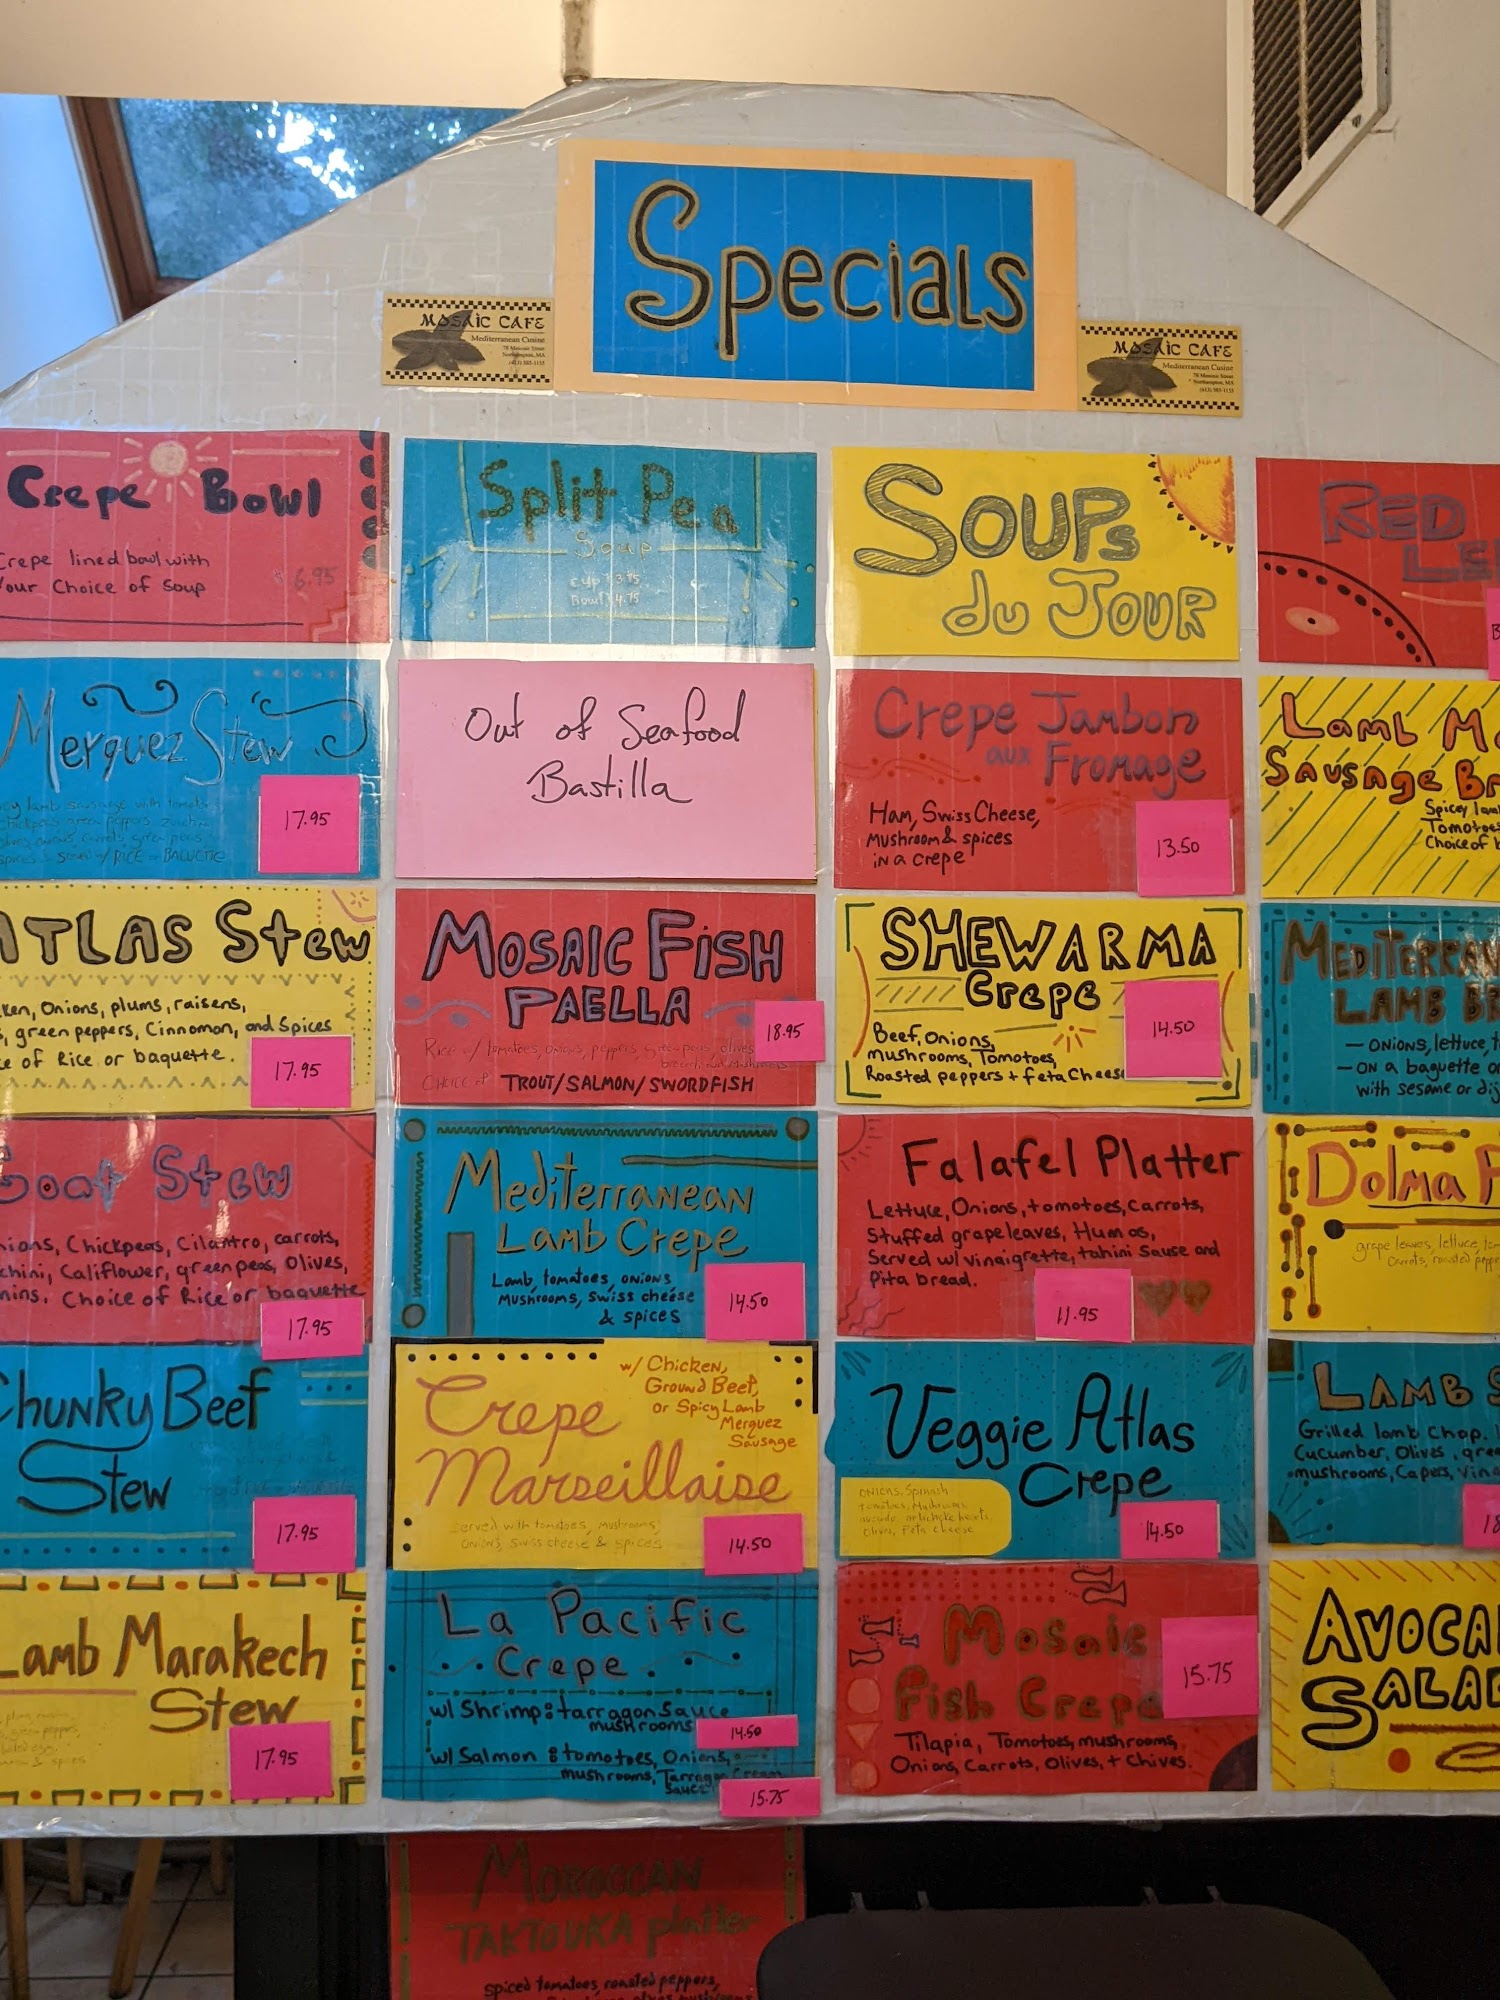 Specials
MOSAIC CAFE
Mediterranean Cusine
78 Masonic Street
Northampton, MA
(413) 585-1155
MOSAIC CAFE
Mediterranean Cusine
78 Masonic Street
Northampton, MA
(413) 585-1155
Crepe Bowl
Crepe lined bowl with
Your Choice of Soup
6.95
Split Pea
Soup
Cup 3.75
Bowl 4.75
Soups
du Jour
RED
Merguez Stew
lamb sausage with
chickpeas green peppers
spices served w/ RICE or BAGUETTE
17.95
Out of Seafood
Bastilla
Crepe Jambon
aux Fromage
Ham, Swiss Cheese,
Mushroom & spices
in a crepe
13.50
Lamb
Sausage
Spicy
Tomatoes
Choice of
ATLAS Stew
Onions, plums, raisens,
green peppers, Cinnomon, and Spices
of Rice or baguette.
17.95
MOSAIC FISH
PAELLA
Rice w/ tomatoes, onions, peppers, green peas, olives
CHOICE of TROUT/SALMON/SWORDFISH
18.95
SHEWARMA
Crepe
Beef, Onions,
mushrooms, Tomatoes,
Roasted peppers + feta Cheese
14.50
LAMB
- ONIONS, lettuce,
- ON a baguette or
with sesame or
Goat Stew
Chickpeas, Cilantro, carrots,
Califlower, green peas, Olives,
Choice of Rice or baguette
17.95
Mediterranean
Lamb Crepe
Lamb, tomatoes, onions
Mushrooms, swiss cheese
& spices
14.50
Falafel Platter
Lettuce, Onions, tomatoes, Carrots,
Stuffed grape leaves, Humos,
Served w/ vinaigrette, tahini Sause and
Pita bread.
11.95
Dolma
grape leaves, lettuce,
Carrots, roasted
Chunky Beef
Stew
17.95
Crepe
Marseillaise
w/ Chicken,
Ground Beef,
or Spicy Lamb
Merguez
Sausage
served with tomatoes, mushrooms,
onions, swiss cheese & spices
14.50
Veggie Atlas
Crepe
ONIONS, Spinash
tomatoes, Mushrooms
avocado, artichoke hearts,
Olives, Feta cheese
14.50
LAMB
Grilled lamb Chop.
Cucumber, Olives,
mushrooms, Capers,
Lamb Marakech
Stew
17.95
La Pacific
Crepe
w/ Shrimp: tarragon Sauce
mushrooms
14.50
w/ Salmon: tomatoes, Onions,
mushrooms, Tarragon Cream
Sauce
15.75
Mosaic
Fish Crepe
Tilapia, Tomatoes, mushrooms,
Onions, Carrots, Olives, + Chives.
15.75
MOROCCAN
TAKTOUKA platter
spiced tomatoes, roasted peppers,